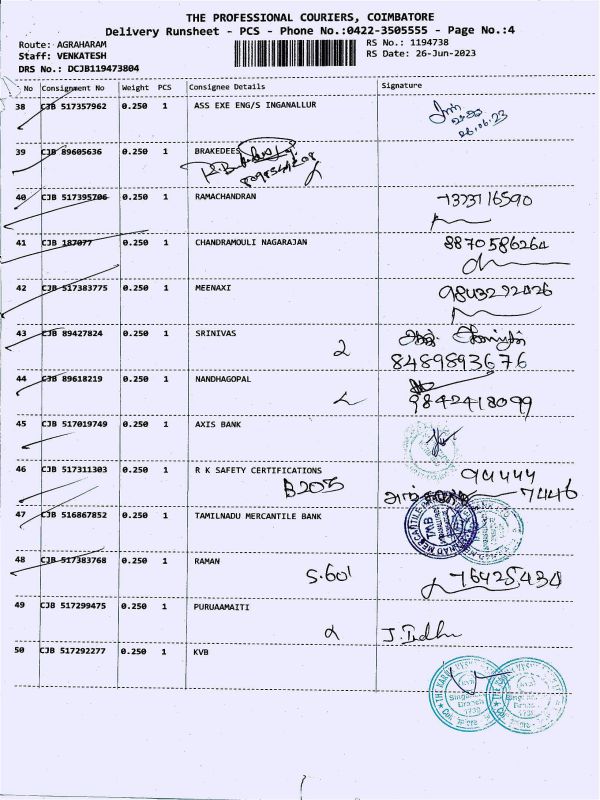 THE PROFESSIONAL COURIERS, COIMBATORE
Delivery Runsheet - PCS - Phone No.:0422-3505555 - Page No.:4
Route: AGRAHARAM RS No.: 1194738
Staff: VENKATESH RS Date: 26-Jun-2023
DRS No.: DCJB119473804
No Consignment No Weight PCS Consignee Details Signature
38 CJB 517357962 0.250 1 ASS EXE ENG/S INGANALLUR
26.06.23
39 CJB 89605636 0.250 1 BRAKEDEES
40 CJB 517395706 0.250 1 RAMACHANDRAN 7373716590
41 CJB 187077 0.250 1 CHANDRAMOULI NAGARAJAN 8870586264
42 CJB 517383775 0.250 1 MEENAXI 9843292026
43 CJB 89427824 0.250 1 SRINIVAS
8489893676
44 CJB 89618219 0.250 1 NANDHAGOPAL
9842418099
45 CJB 517019749 0.250 1 AXIS BANK
46 CJB 517311303 0.250 1 R K SAFETY CERTIFICATIONS 94444
B205 7446
47 CJB 516867852 0.250 1 TAMILNADU MERCANTILE BANK
TMB
48 CJB 517383768 0.250 1 RAMAN
S.601 76425430
49 CJB 517299475 0.250 1 PURUAAMAITI
J. Indhu
50 CJB 517292277 0.250 1 KVB